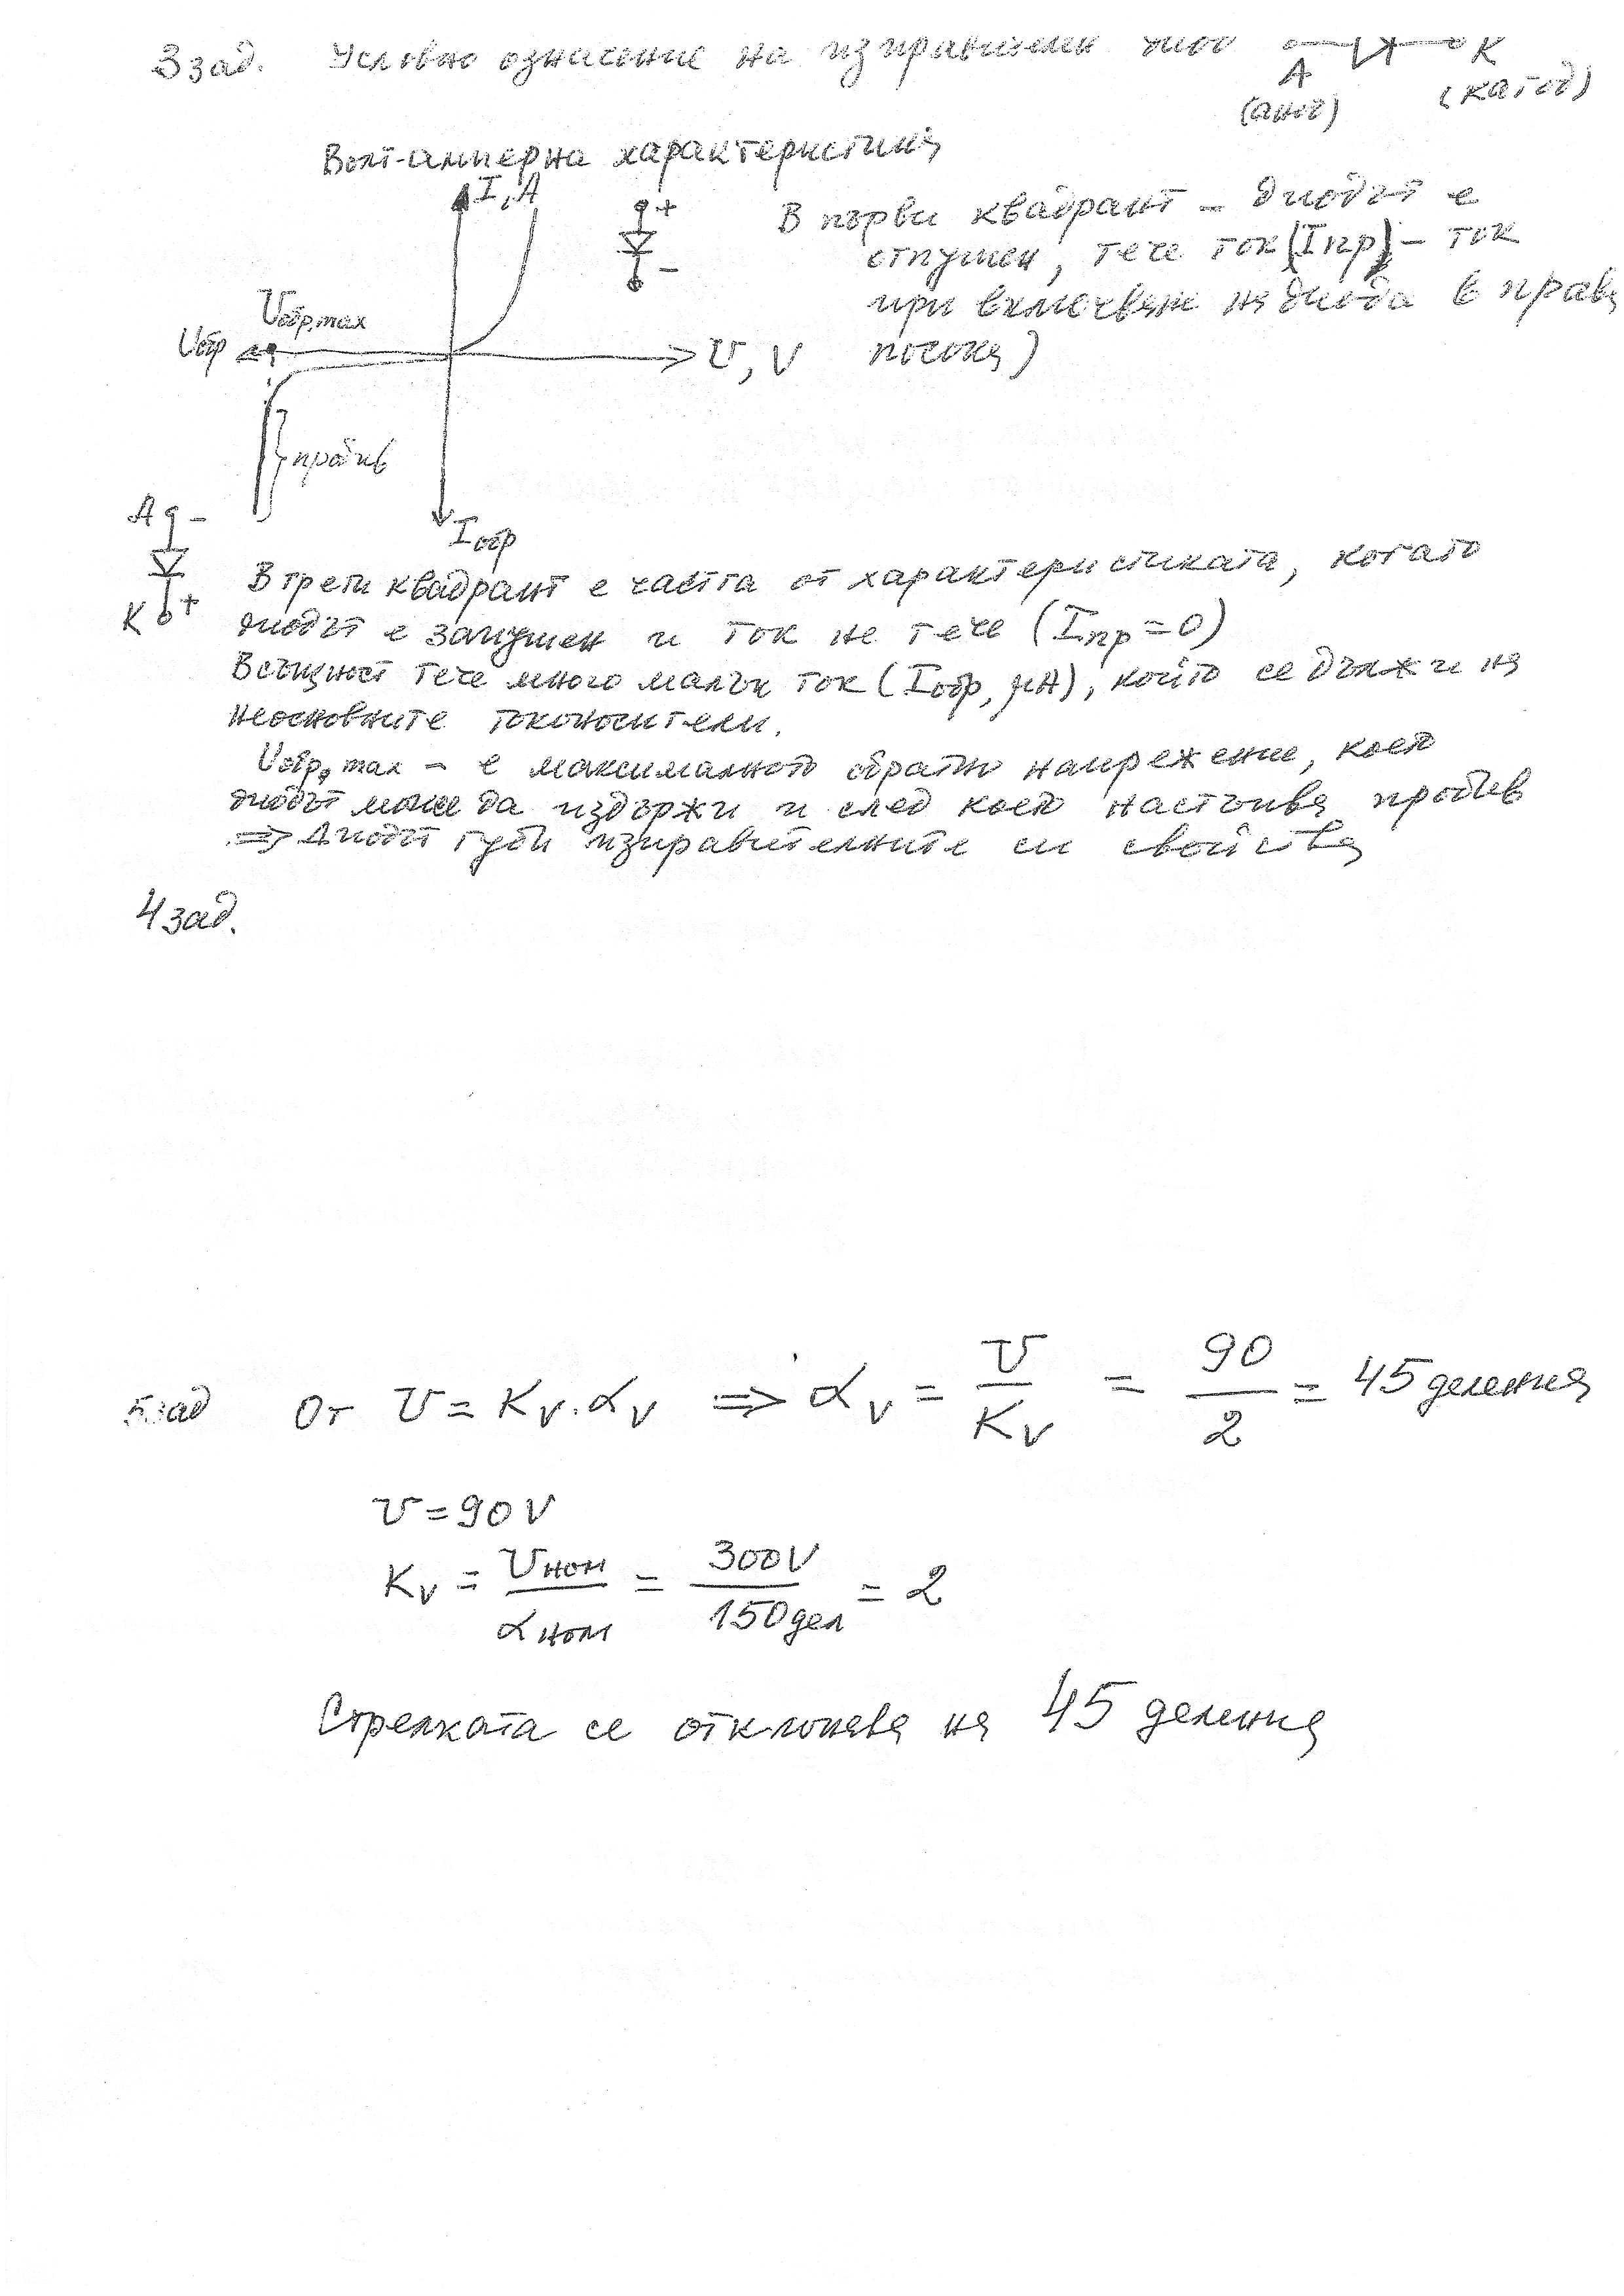 3 зад. Условно означение на изправителен диод
А К
(анод) (катод)
Волт-амперна характеристика
I, A
+
-
В първи квадрант - диодът е
отпушен, тече ток (Iпр) - ток
при включване на диода в права
посока)
Uобр,max
Uобр
U, V
пробив
Iобр
А -
К +
В трети квадрант е частта от характеристиката, когато
диодът е запушен и ток не тече (Iпр = 0)
Всъщност тече много малък ток (Iобр, μA), който се дължи на
неосновните токоносители.
Uобр, max - е максималното обратно напрежение, което
диодът може да издържи и след което настъпва пробив
=> Диодът губи изправителните си свойства
4 зад.
5 зад От U = KV . αV => αV = U / KV = 90 / 2 = 45 деления
U = 90 V
KV = Uном / αном = 300V / 150 дел = 2
Стрелката се отклонява на 45 деления